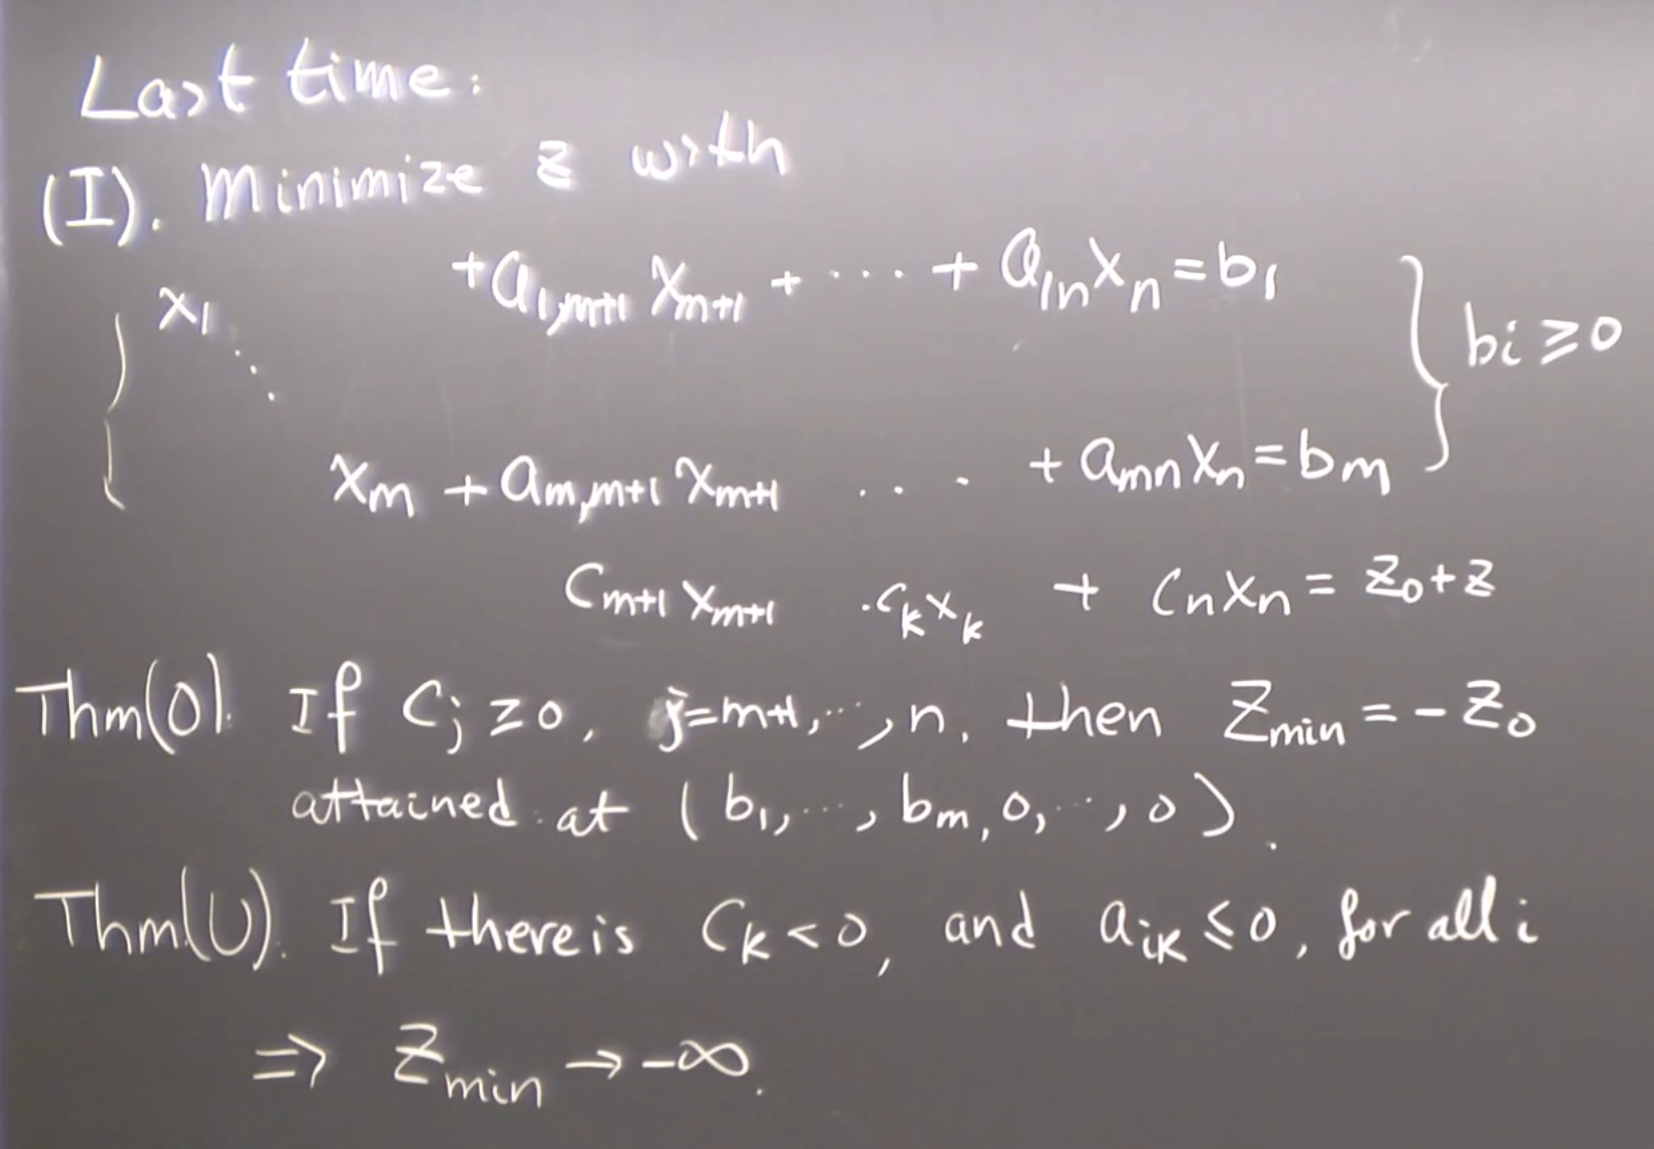 Last time:
(I). Minimize z with
x₁ + a₁,ₘ₊₁ xₘ₊₁ + ⋯ + a₁ₙxₙ = b₁
⋱ } bᵢ ≥ 0
xₘ + aₘ,ₘ₊₁ xₘ₊₁ ... + aₘₙxₙ = bₘ
cₘ₊₁ xₘ₊₁ . cₖxₖ + cₙxₙ = z₀ + z
Thm(0). If cⱼ ≥ 0, j=m+1, ⋯, n, then Zmin = - Z₀
attained at (b₁, ⋯, bₘ, 0, ⋯, 0).
Thm(U). If there is cₖ < 0, and aᵢₖ ≤ 0, for all i
⇒ Zmin → -∞.